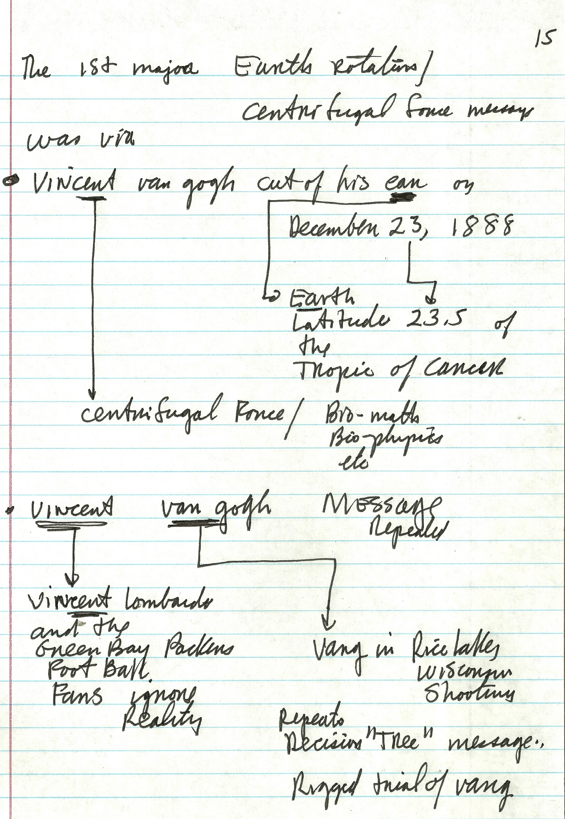 15
The 1st major Earth Rotation/
centrifugal force message
was via
• Vincent van gogh cut of his ear on
December 23, 1888
Earth
Latitude 23.5 of
the
Tropic of Cancer
centrifugal Force / Bio-math
Bio-physics
etc
• Vincent van gogh Message
Repeated
Vincent Lombardo
and the
Green Bay Packers
Foot Ball
Fans ignore
Reality
Vang in Rice Lake
Wisconsin
Shooting
Repeats
Decision "Tree" message..
Rigged trial of vang